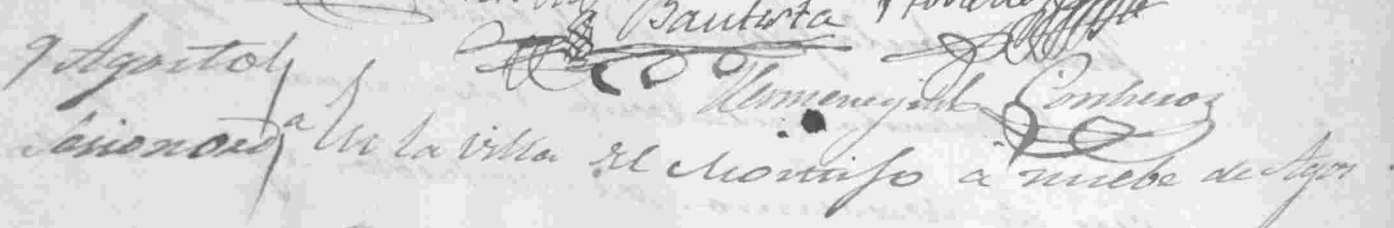 Bautista
9 Agosto
Hermenegildo Contreras
Sesion ordª En la villa del Montijo a nuebe de Agos